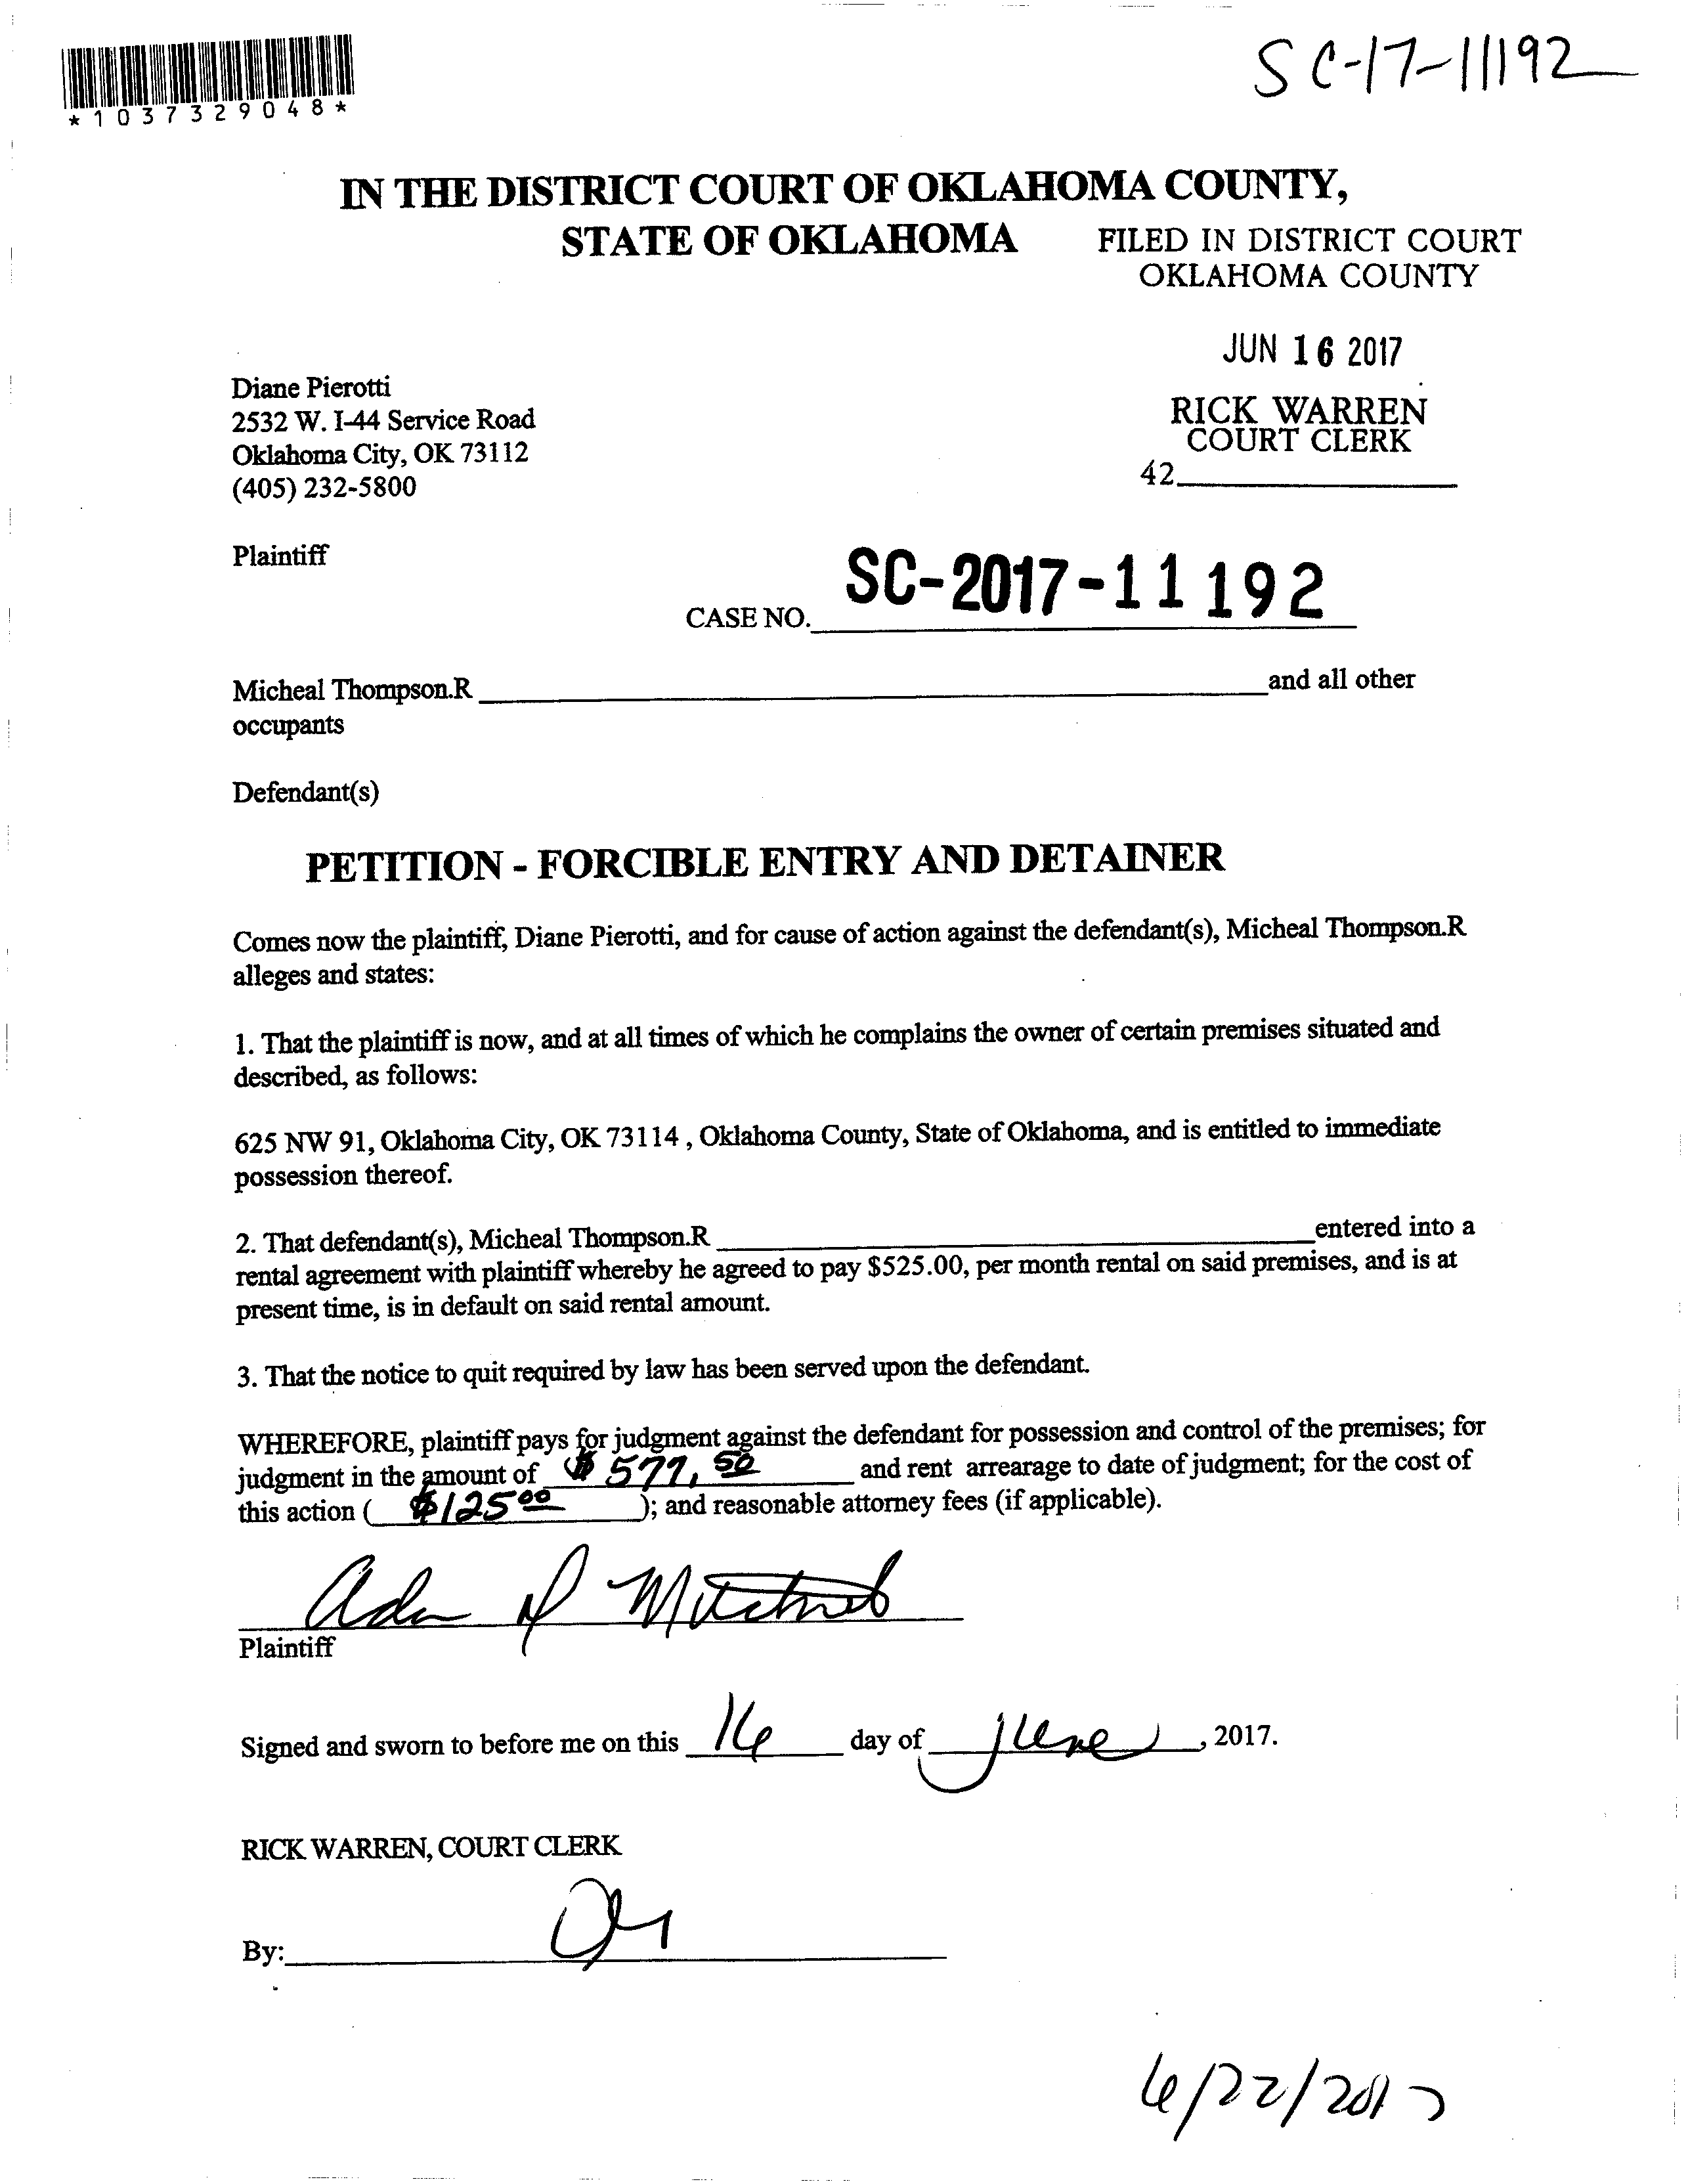 SC-17-11192
*1037329048*
IN THE DISTRICT COURT OF OKLAHOMA COUNTY,
STATE OF OKLAHOMA
FILED IN DISTRICT COURT
OKLAHOMA COUNTY
JUN 16 2017
RICK WARREN
COURT CLERK
42
Diane Pierotti
2532 W. I-44 Service Road
Oklahoma City, OK 73112
(405) 232-5800
Plaintiff
CASE NO. SC-2017-11192
Micheal Thompson.R and all other
occupants
Defendant(s)
PETITION - FORCIBLE ENTRY AND DETAINER
Comes now the plaintiff, Diane Pierotti, and for cause of action against the defendant(s), Micheal Thompson.R
alleges and states:
1. That the plaintiff is now, and at all times of which he complains the owner of certain premises situated and
described, as follows:
625 NW 91, Oklahoma City, OK 73114 , Oklahoma County, State of Oklahoma, and is entitled to immediate
possession thereof.
2. That defendant(s), Micheal Thompson.R entered into a
rental agreement with plaintiff whereby he agreed to pay $525.00, per month rental on said premises, and is at
present time, is in default on said rental amount.
3. That the notice to quit required by law has been served upon the defendant.
WHEREFORE, plaintiff pays for judgment against the defendant for possession and control of the premises; for
judgment in the amount of $577.50 and rent arrearage to date of judgment; for the cost of
this action ( $125 00 ); and reasonable attorney fees (if applicable).
Plaintiff
Signed and sworn to before me on this 16 day of June, 2017.
RICK WARREN, COURT CLERK
By:
6/22/2017